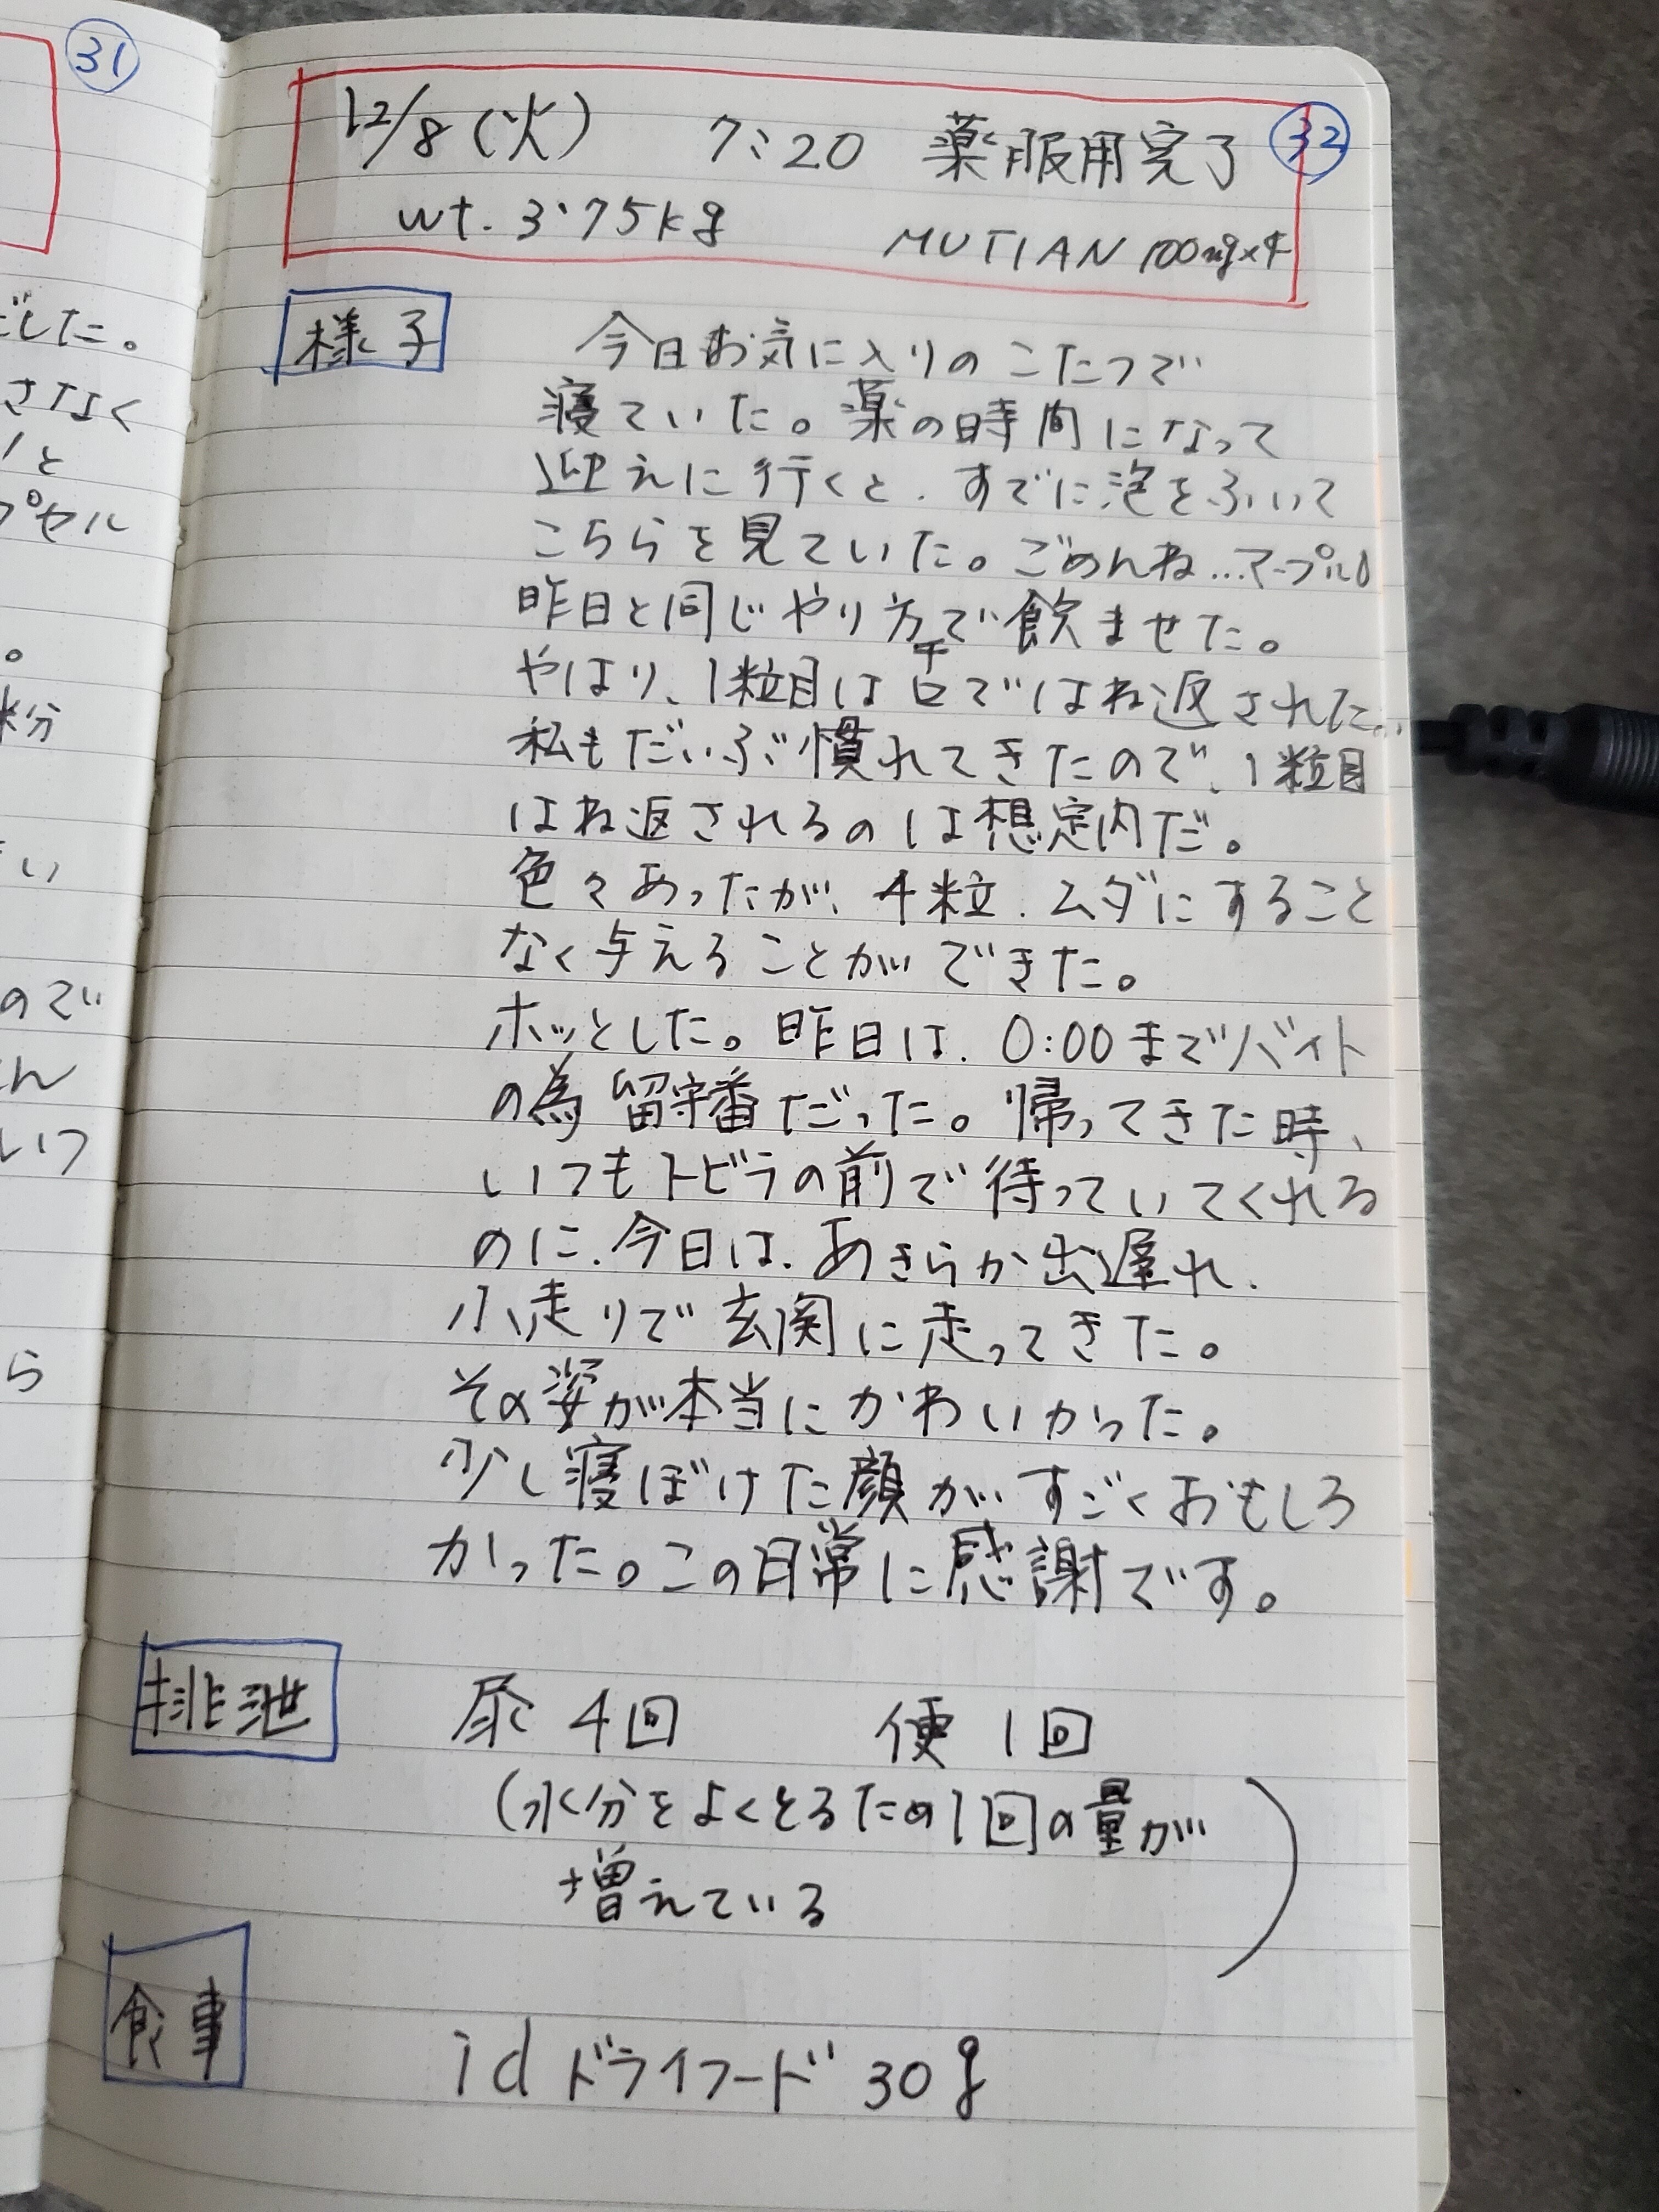 31
でした。
さなく
と
プセル
。
米分
い
ので
ん
いつ
ら
32
12/8(火) 7:20 薬服用完了
wt. 3.75kg MUTIAN 100mg×4
様子 今日お気に入りのこたつで
寝ていた。薬の時間になって
迎えに行くと、すでに泡をふいて
こちらを見ていた。ごめんね…マープル
昨日と同じやり方で飲ませた。
やはり、1粒目は舌ではね返された…
私もだいぶ慣れてきたので、1粒目
はね返されるのは想定内だ。
色々あったが、4粒、ムダにすること
なく与えることができた。
ホッとした。昨日は、0:00までバイト
の為留守番だった。帰ってきた時、
いつもトビラの前で待っていてくれる
のに、今日は、あきらか出遅れ、
小走りで玄関に走ってきた。
その姿が本当にかわいかった。
少し寝ぼけた顔が、すごくおもしろ
かった。この日常に感謝です。
排泄 尿4回 便1回
(水分をよくとるため1回の量が
増えている)
食事 id ドライフード 30g